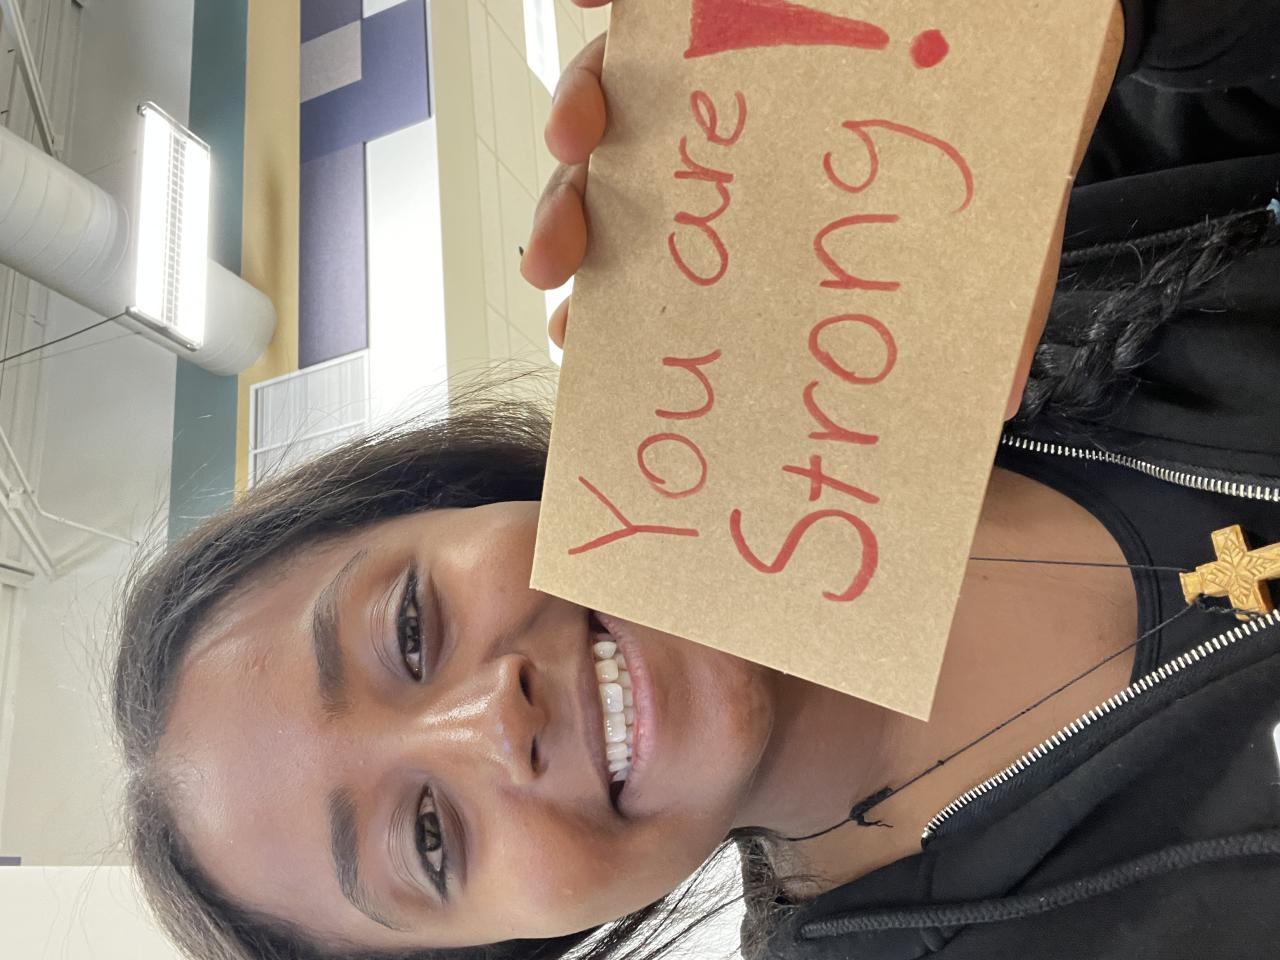 You are
Strong!